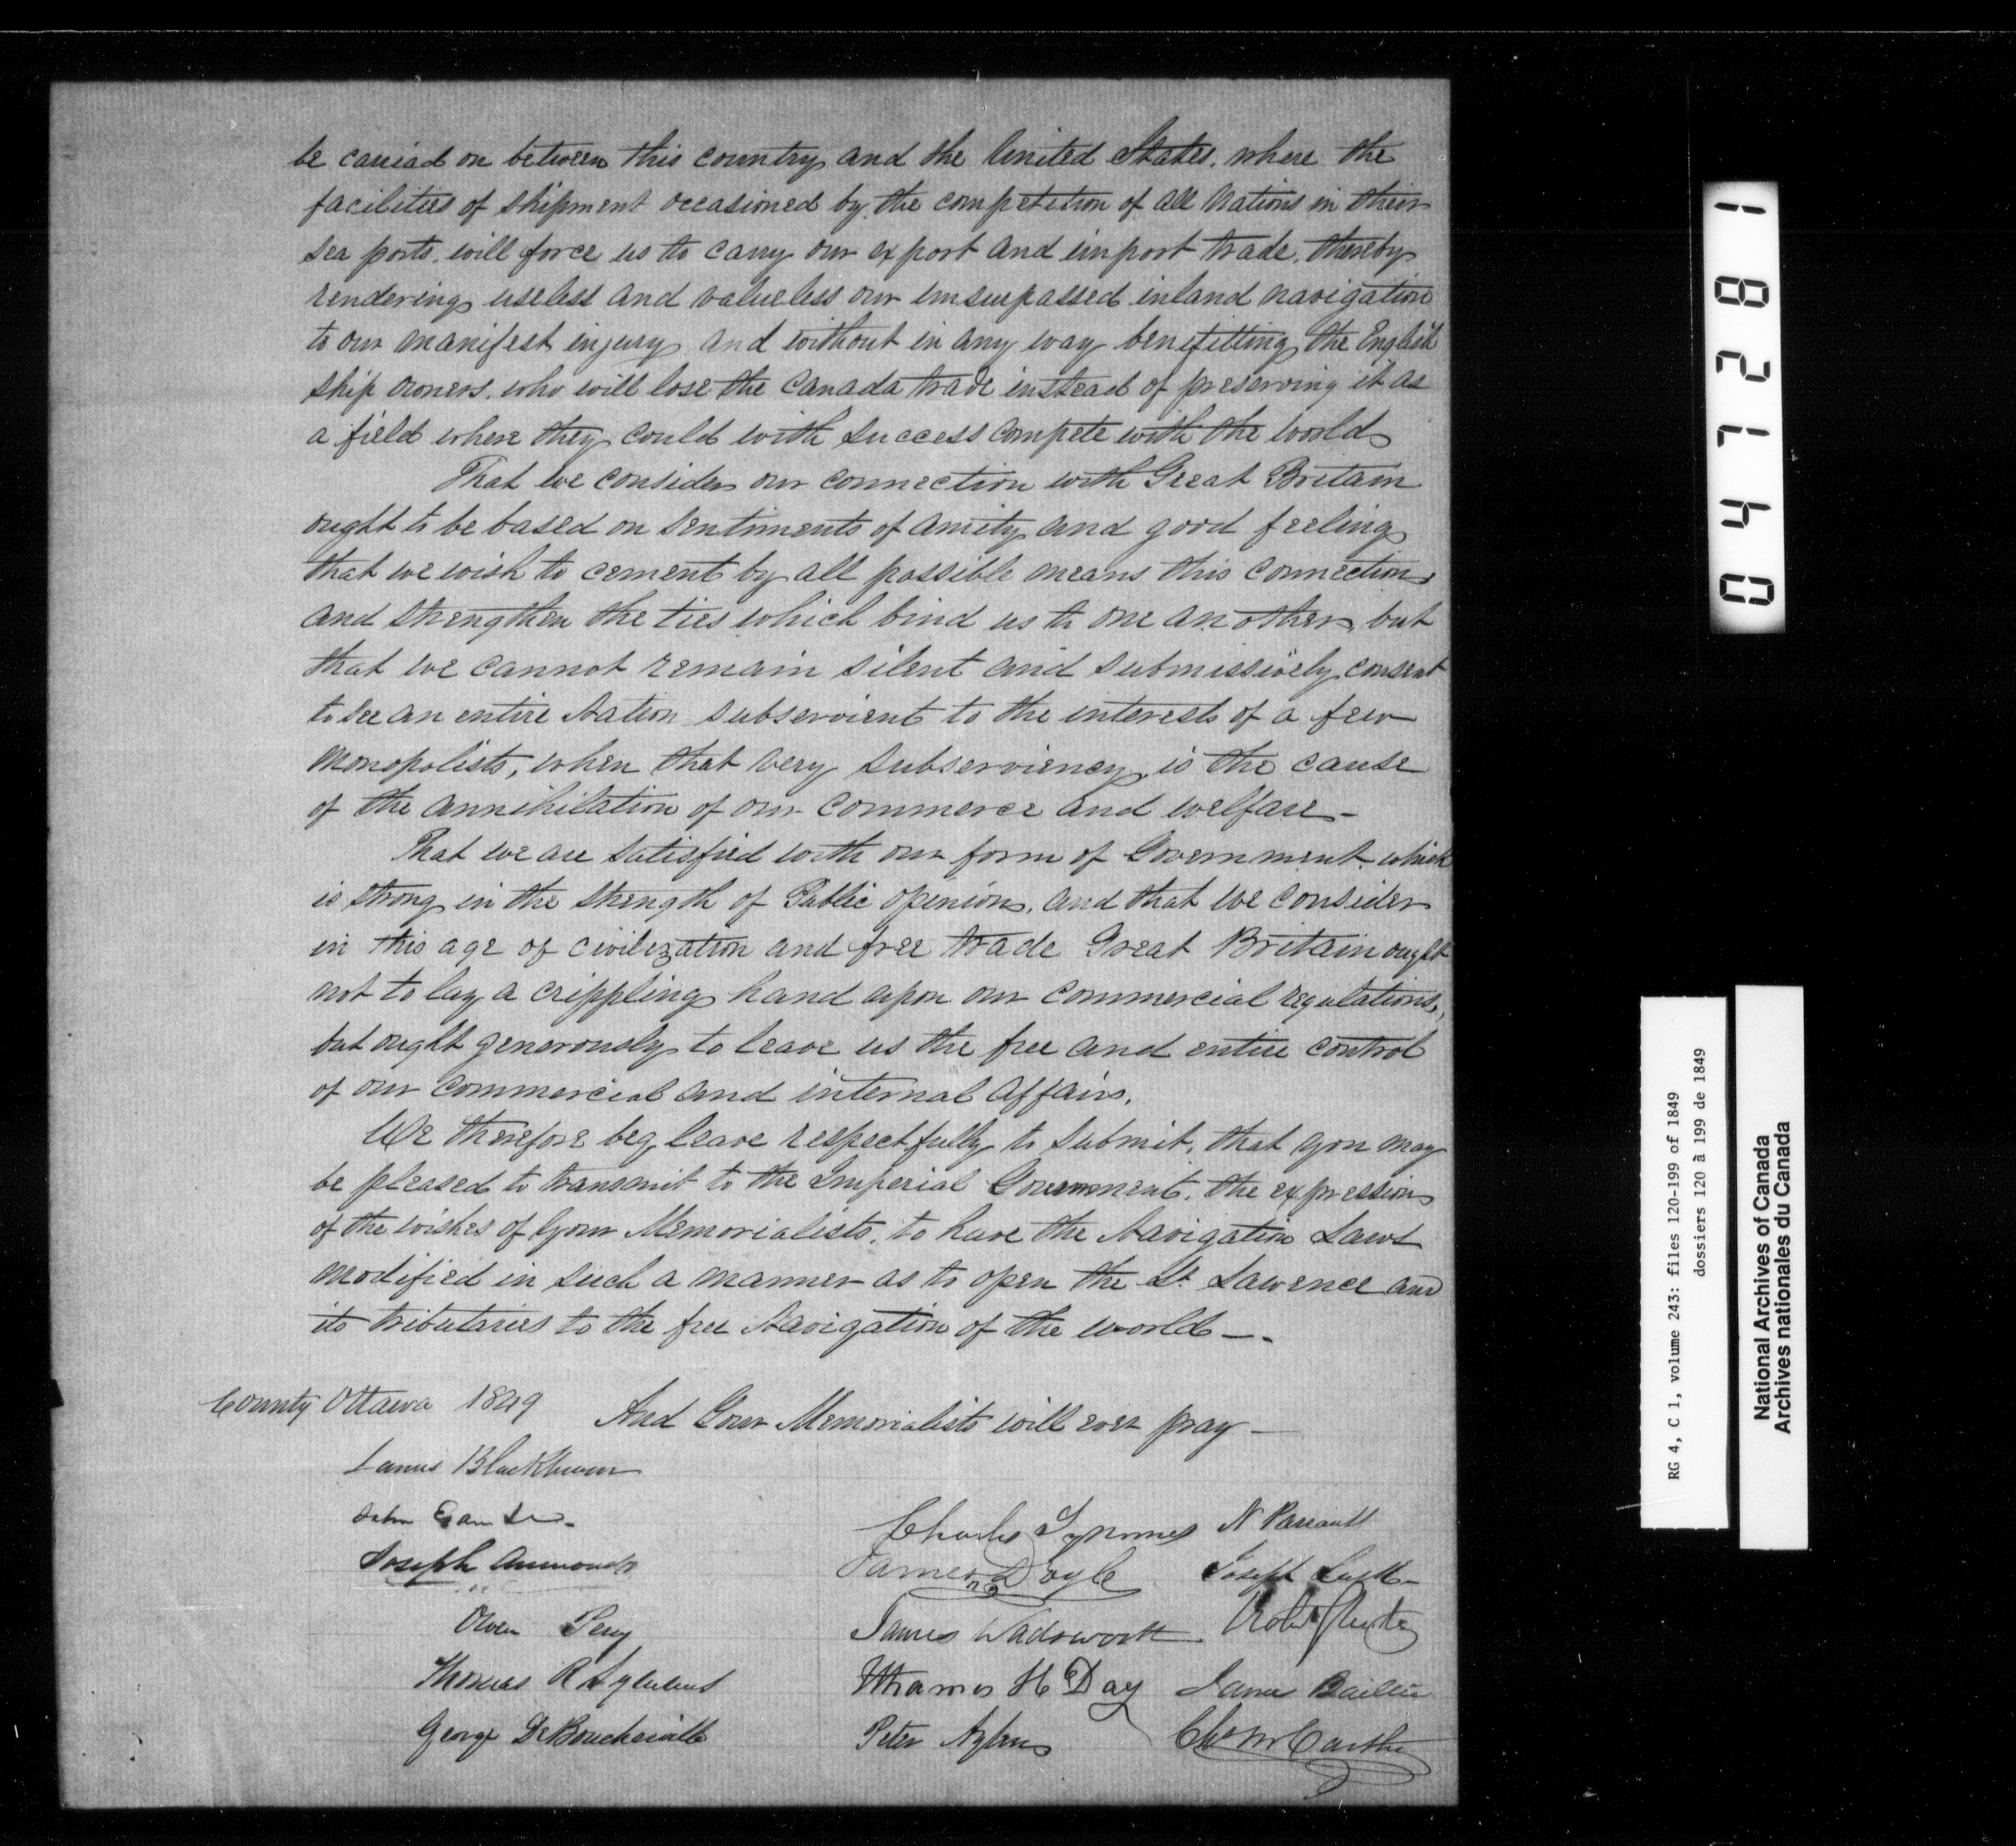 be carried on between this country and the United States, where the
facilities of shipment occasioned by the competition of all Nations in their
sea ports, will force us to carry our export and import trade, thereby
rendering useless and valueless our unsurpassed inland navigation
to our manifest injury and without in any way benefitting the English
ship owners, who will lose the Canada trade instead of preserving it as
a field where they could with success compete with the world
That we consider our connection with Great Britain
ought to be based on sentiments of amity and good feeling
that we wish to cement by all possible means this connection
and strengthen the ties which bind us to one another, but
that we cannot remain silent and submissively consent
to see an entire Nation subservient to the interests of a few
monopolists, when that very subserviency is the cause
of the annihilation of our commerce and welfare -
That we are satisfied with our form of Government which
is strong in the strength of Public opinion, and that we consider
in this age of civilization and free trade Great Britain ought
not to lay a crippling hand upon our commercial regulations,
but ought generously to leave us the free and entire control
of our commercial and internal affairs.
We therefore beg leave respectfully to submit, that you may
be pleased to transmit to the Imperial Government, the expression
of the wishes of your Memorialists, to have the Navigation Laws
modified in such a manner as to open the St. Lawrence and
its tributaries to the free Navigation of the world -.
County Ottawa 1849
And Your Memorialists will ever pray -
James Blackburn
John Egan
Joseph Aumond
Owen Perry
Thomas R
George DeBoucherville
Charles Symmes
James Doyle
James Wadsworth
Thomas H Day
Peter Aylen
N Parrault
Joseph Lusk
James Baillie
Chs McCarthy
047281
RG 4, C 1, volume 243: files 120-199 of 1849
dossiers 120 à 199 de 1849
National Archives of Canada
Archives nationales du Canada